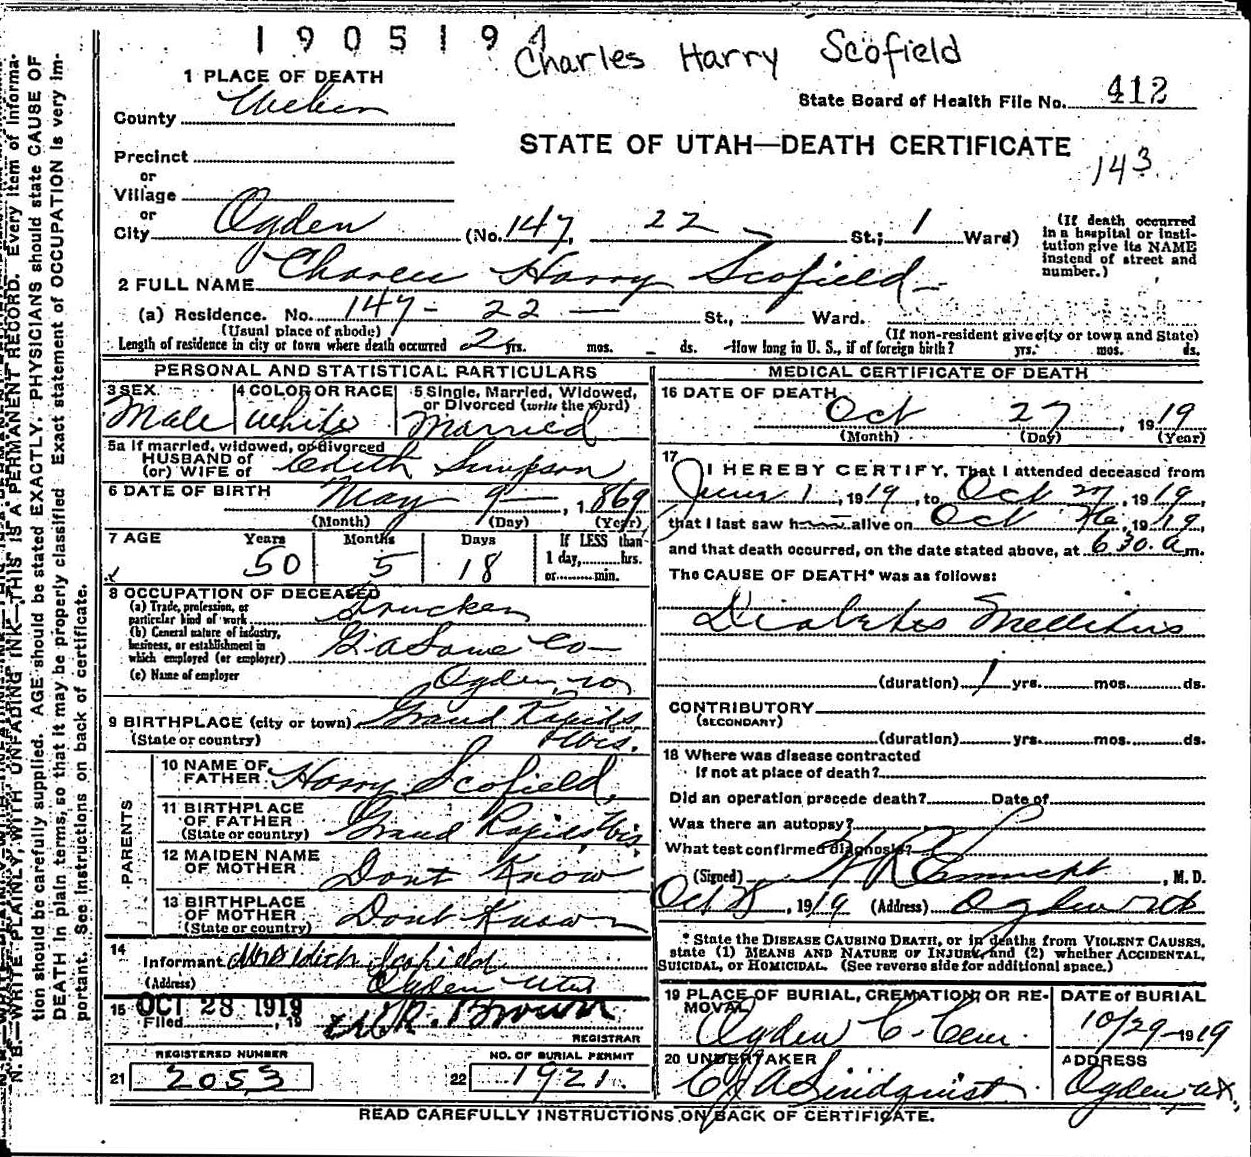 1905194
Charles Harry Scofield
1 PLACE OF DEATH
County Weber
State Board of Health File No. 412
STATE OF UTAH—DEATH CERTIFICATE
143
Precinct
or
Village
or
City Ogden (No. 147, 22 St.; 1 Ward)
(If death occurred in a hospital or institution give its NAME instead of street and number.)
2 FULL NAME Charles Harry Scofield
(a) Residence. No. 147 - 22 — St., Ward.
(Usual place of abode) (If non-resident give city or town and State)
Length of residence in city or town where death occurred 2 yrs. mos. ds. How long in U. S., if of foreign birth? yrs. mos. ds.
PERSONAL AND STATISTICAL PARTICULARS
3 SEX Male
4 COLOR OR RACE White
5 Single, Married, Widowed, or Divorced (write the word) Married
5a If married, widowed, or divorced
HUSBAND of
(or) WIFE of Edith Simpson
6 DATE OF BIRTH May 9 — , 1869
(Month) (Day) (Year)
7 AGE Years Months Days If LESS than
50 5 18 1 day, hrs.
or min.
8 OCCUPATION OF DECEASED
(a) Trade, profession, or
particular kind of work
(b) General nature of industry,
business, or establishment in
which employed (or employer)
(c) Name of employer
Ogden
9 BIRTHPLACE (city or town) Grand Rapids
(State or country) Wis.
PARENTS
10 NAME OF FATHER Harry Scofield
11 BIRTHPLACE OF FATHER (State or country) Grand Rapids, Wis.
12 MAIDEN NAME OF MOTHER Dont Know
13 BIRTHPLACE OF MOTHER (State or country) Dont Know
14
Informant Mrs Edith Scofield
(Address) Ogden Utah
15 OCT 28 1919
Filed , 19 Brown
REGISTRAR
REGISTERED NUMBER
21 2053
NO. OF BURIAL PERMIT
22 1921.
MEDICAL CERTIFICATE OF DEATH
16 DATE OF DEATH
Oct 27 , 1919
(Month) (Day) (Year)
17
I HEREBY CERTIFY, That I attended deceased from
June 1, 1919, to Oct 27, 1919,
that I last saw h alive on Oct 26, 1919,
and that death occurred, on the date stated above, at 6 30 a m.
The CAUSE OF DEATH* was as follows:
Diabetes Mellitus
(duration) 1 yrs. mos. ds.
CONTRIBUTORY
(SECONDARY)
(duration) yrs. mos. ds.
18 Where was disease contracted
If not at place of death?
Did an operation precede death? Date of
Was there an autopsy?
What test confirmed diagnosis?
(Signed) , M. D.
Oct 28, 1919 (Address) Ogden
* State the DISEASE CAUSING DEATH, or in deaths from VIOLENT CAUSES,
state (1) MEANS AND NATURE OF INJURY, and (2) whether ACCIDENTAL,
SUICIDAL, or HOMICIDAL. (See reverse side for additional space.)
19 PLACE OF BURIAL, CREMATION, OR REMOVAL
Ogden C. Cem.
DATE of BURIAL
10/29 1919
20 UNDERTAKER
Lindquist
ADDRESS
Ogden
READ CAREFULLY INSTRUCTIONS ON BACK OF CERTIFICATE.
N. B.—WRITE PLAINLY, WITH UNFADING INK—THIS IS A PERMANENT RECORD. Every item of information should be carefully supplied. AGE should be stated EXACTLY. PHYSICIANS should state CAUSE OF DEATH in plain terms, so that it may be properly classified. Exact statement of OCCUPATION is very important. See instructions on back of certificate.